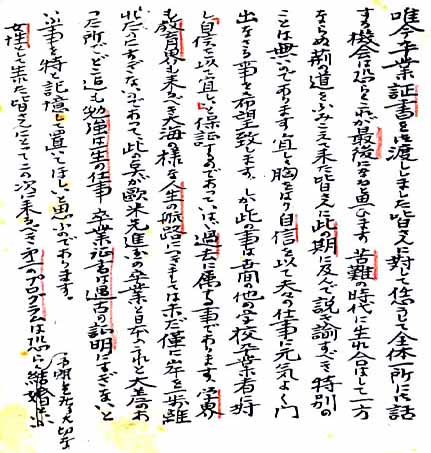 唯今卒業証書を御渡しました皆さんに対して恁うして全体一所に御話
する機会は恐らく之が最後になると思ひます 苦難の時代に生れ合はして一方
ならぬ荊の道をふみこえて来た皆さんに此の期に及んで説き諭すべき特別の
ことは無いのであります 宜しく胸をはり自信を以て夫々の仕事に元気よく門
出なさる事を希望致します。しかし此の事は吾間の他の学校卒業者に
自信を以て宜しく保証するのであって、いはゞ過去に属する事であります。学界
も教育界も来るべき大海の様な人生の航路につきましては未だ僅に岸を一歩離
れたにすぎないのであって、此の点が欧米先進國の卒業と日本のそれと大差のあ
った所でどこ迄も勉強は一生の仕事 卒業証書は過去の証明にすぎないと
いふ事を特と記憶して置いてほしいと思ふのであります。
女性として来た皆さんにとって次に来るべき第一のプログラムは恐らく結婚